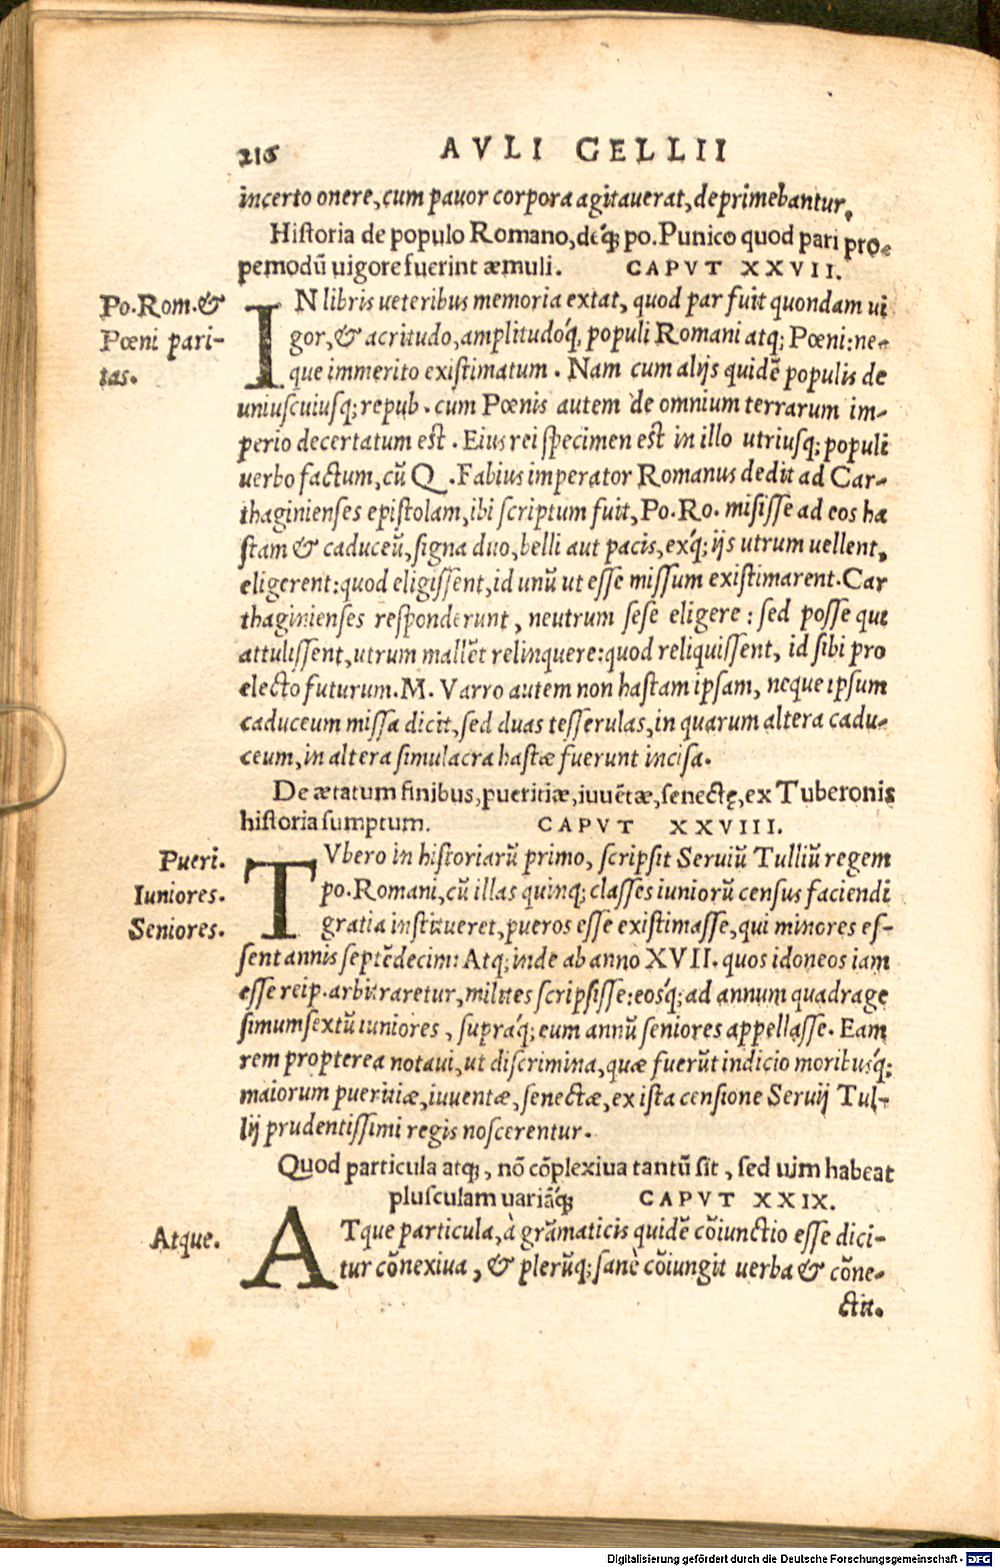 216 AVLI GELLII
incerto onere, cum pauor corpora agitauerat, deprimebantur.
Historia de populo Romano, deq́ꝫ po. Punico quod pari pro-
pemodū uigore fuerint æmuli. CAPVT XXVII.
Po. Rom. &
Pœni pari-
tas.
IN libris ueteribus memoria extat, quod par fuit quondam ui
gor, & acritudo, amplitudoq́, populi Romani atq; Pœni: ne-
que immerito existimatum. Nam cum alijs quidē populis de
uniuscuiusq; repub. cum Pœnis autem de omnium terrarum im-
perio decertatum est. Eius rei specimen est in illo utriusq; populi
uerbo factum, cū Q. Fabius imperator Romanus dedit ad Car-
thaginienses epistolam, ibi scriptum fuit, Po. Ro. misisse ad eos ha
stam & caduceū, signa duo, belli aut pacis, exq́; ijs utrum uellent,
eligerent: quod eligissent, id unū ut esse missum existimarent. Car
thaginienses responderunt, neutrum sese eligere: sed posse qui
attulissent, utrum mallēt relinquere: quod reliquissent, id sibi pro
electo futurum. M. Varro autem non hastam ipsam, neque ipsum
caduceum missa dicit, sed duas tesserulas, in quarum altera cadu-
ceum, in altera simulacra hastæ fuerunt incisa.
De ætatum finibus, pueritiæ, iuuētæ, senectę, ex Tuberonis
historia sumptum. CAPVT XXVIII.
Pueri.
Iuniores.
Seniores.
TVbero in historiarū primo, scripsit Seruiū Tulliū regem
po. Romani, cū illas quinq; classes iuniorū census faciendi
gratia institueret, pueros esse existimasse, qui minores es-
sent annis septēdecim: Atq; inde ab anno XVII. quos idoneos iam
esse reip. arbitraretur, milites scripsisse: eosq́; ad annum quadrage
simumsextū iuniores, supraq́; eum annū seniores appellasse. Eam
rem propterea notaui, ut discrimina, quæ fuerūt indicio moribusq́;
maiorum pueritiæ, iuuentæ, senectæ, ex ista censione Seruij Tul-
lij prudentissimi regis noscerentur.
Quod particula atqꝫ, nō cōplexiua tantū sit, sed uim habeat
plusculam uariāq́ꝫ CAPVT XXIX.
Atque.
ATque particula, à grāmaticis quidē cōiunctio esse dici-
tur cōnexiua, & plerūq; sanè cōiungit uerba & cōne-
ctit.
Digitalisierung gefördert durch die Deutsche Forschungsgemeinschaft - DFG